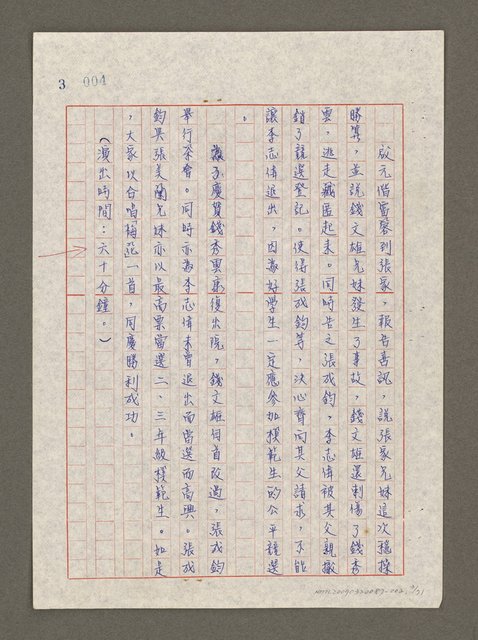 3 004
啟元偕雷黎到張家，報告喜訊，說張家兄妹這次穩操
勝算，並說錢文雄兄妹發生了事故，錢文雄還刺傷了錢秀
雲，逃走藏匿起來。同時告之張成鈞，李志偉被其父親撤
銷了競選登記。使得張成鈞等，決心齊向其父請求，不能
讓李志偉退出，因為好學生一定應參加模範生的公平競選
。
為了慶賀錢秀雲康復出院，錢文雄俯首改過，張成鈞
舉行茶會。同時亦為李志偉未曾退出而當選而高興。張成
鈞與張美蘭兄妹亦以最高票當選二、三年級模範生。如是
，大家以合唱梅花一首，同慶勝利成功。
（演出時間：六十分鐘。）